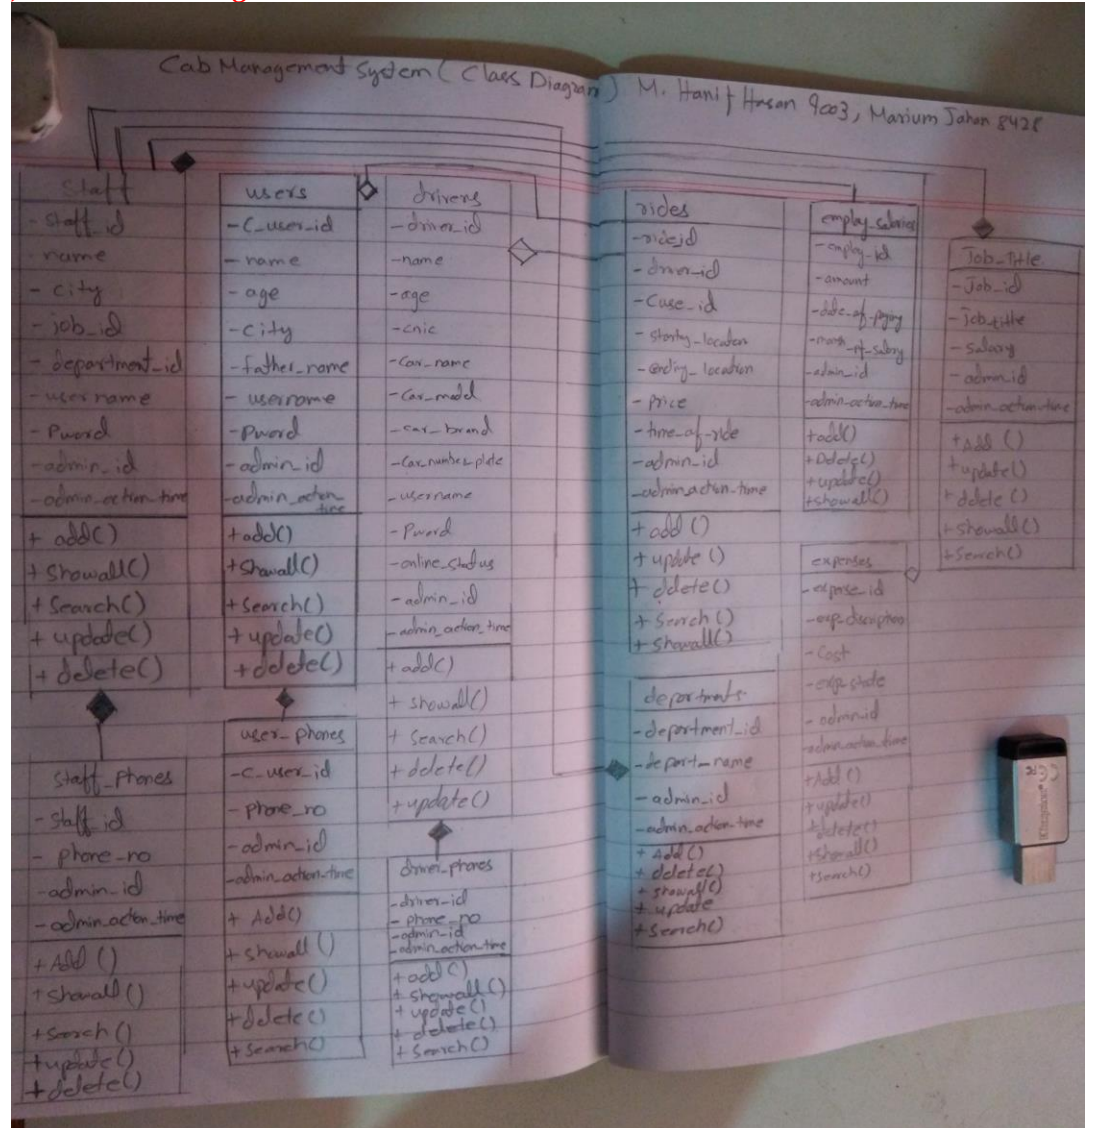 Cab Management System ( Class Diagram ) M. Hanif Hasan 9003, Marium Jahan 8428
Staff
- Staff_id
- name
- City
- job_id
- department_id
- username
- Pword
- admin_id
- admin_action_time
+ add()
+ Showall()
+ Search()
+ update()
+ delete()
Staff_Phones
- Staff_id
- phone_no
- admin_id
- admin_action_time
+ Add ()
+ Showall ()
+ Search ()
+ update()
+ delete()
users
- C_user_id
- name
- age
- City
- father_name
- username
- Pword
- admin_id
- admin_action_
time
+ add()
+ Showall()
+ Search()
+ update()
+ delete()
user_phones
- C_user_id
- phone_no
- admin_id
- admin_action_time
+ Add()
+ Showall ()
+ update()
+ delete()
+ Search()
drivers
- driver_id
- name
- age
- cnic
- Car_name
- Car_model
- car_brand
- Car_number_plate
- username
- Pword
- online_status
- admin_id
- admin_action_time
+ add()
+ showall()
+ Search()
+ delete()
+ update()
driver_phones
- driver_id
- phone_no
- admin_id
- admin_action_time
+ add()
+ showall()
+ update()
+ delete()
+ Search()
rides
- rideid
- driver_id
- Cuse_id
- starting_location
- ending_location
- Price
- time_of_ride
- admin_id
- admin_action_time
+ add ()
+ update ()
+ delete()
+ Search()
+ Showall()
departments
- department_id
- depart_name
- admin_id
- admin_action_time
+ Add()
+ delete()
+ showall()
+ update
+ Search()
employ_salaries
- employ_id
- amount
- date_of_paying
- month_of_salary
- admin_id
- admin_action_time
+ add()
+ Delete()
+ update()
+ showall()
expenses
- expense_id
- exp_discription
- Cost
- admin_id
- admin_action_time
+ Add ()
+ update()
+ delete()
+ Showall()
+ Search()
Job_Title
- Job_id
- job_title
- Salary
- admin_id
- admin_action_time
+ Add ()
+ update()
+ delete ()
+ Showall()
+ Search()
Kingston